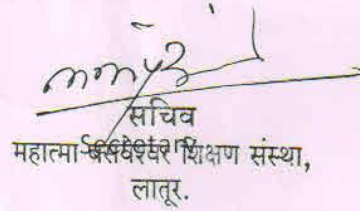 सचिव
Secretary
महात्मा बसवेश्वर शिक्षण संस्था,
लातूर.